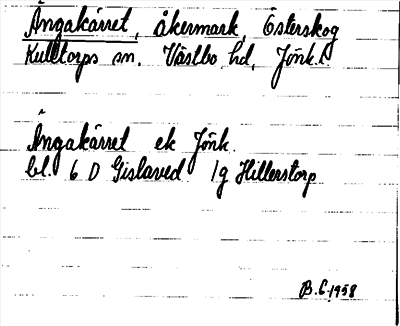 Ängakärret, åkermark, Österskog
Kulltorps sn. Västbo hd, Jönk.l.
Ängakärret ek Jönk.
bl. 6 D Gislaved 1g Hillerstorp
B.G. 1958